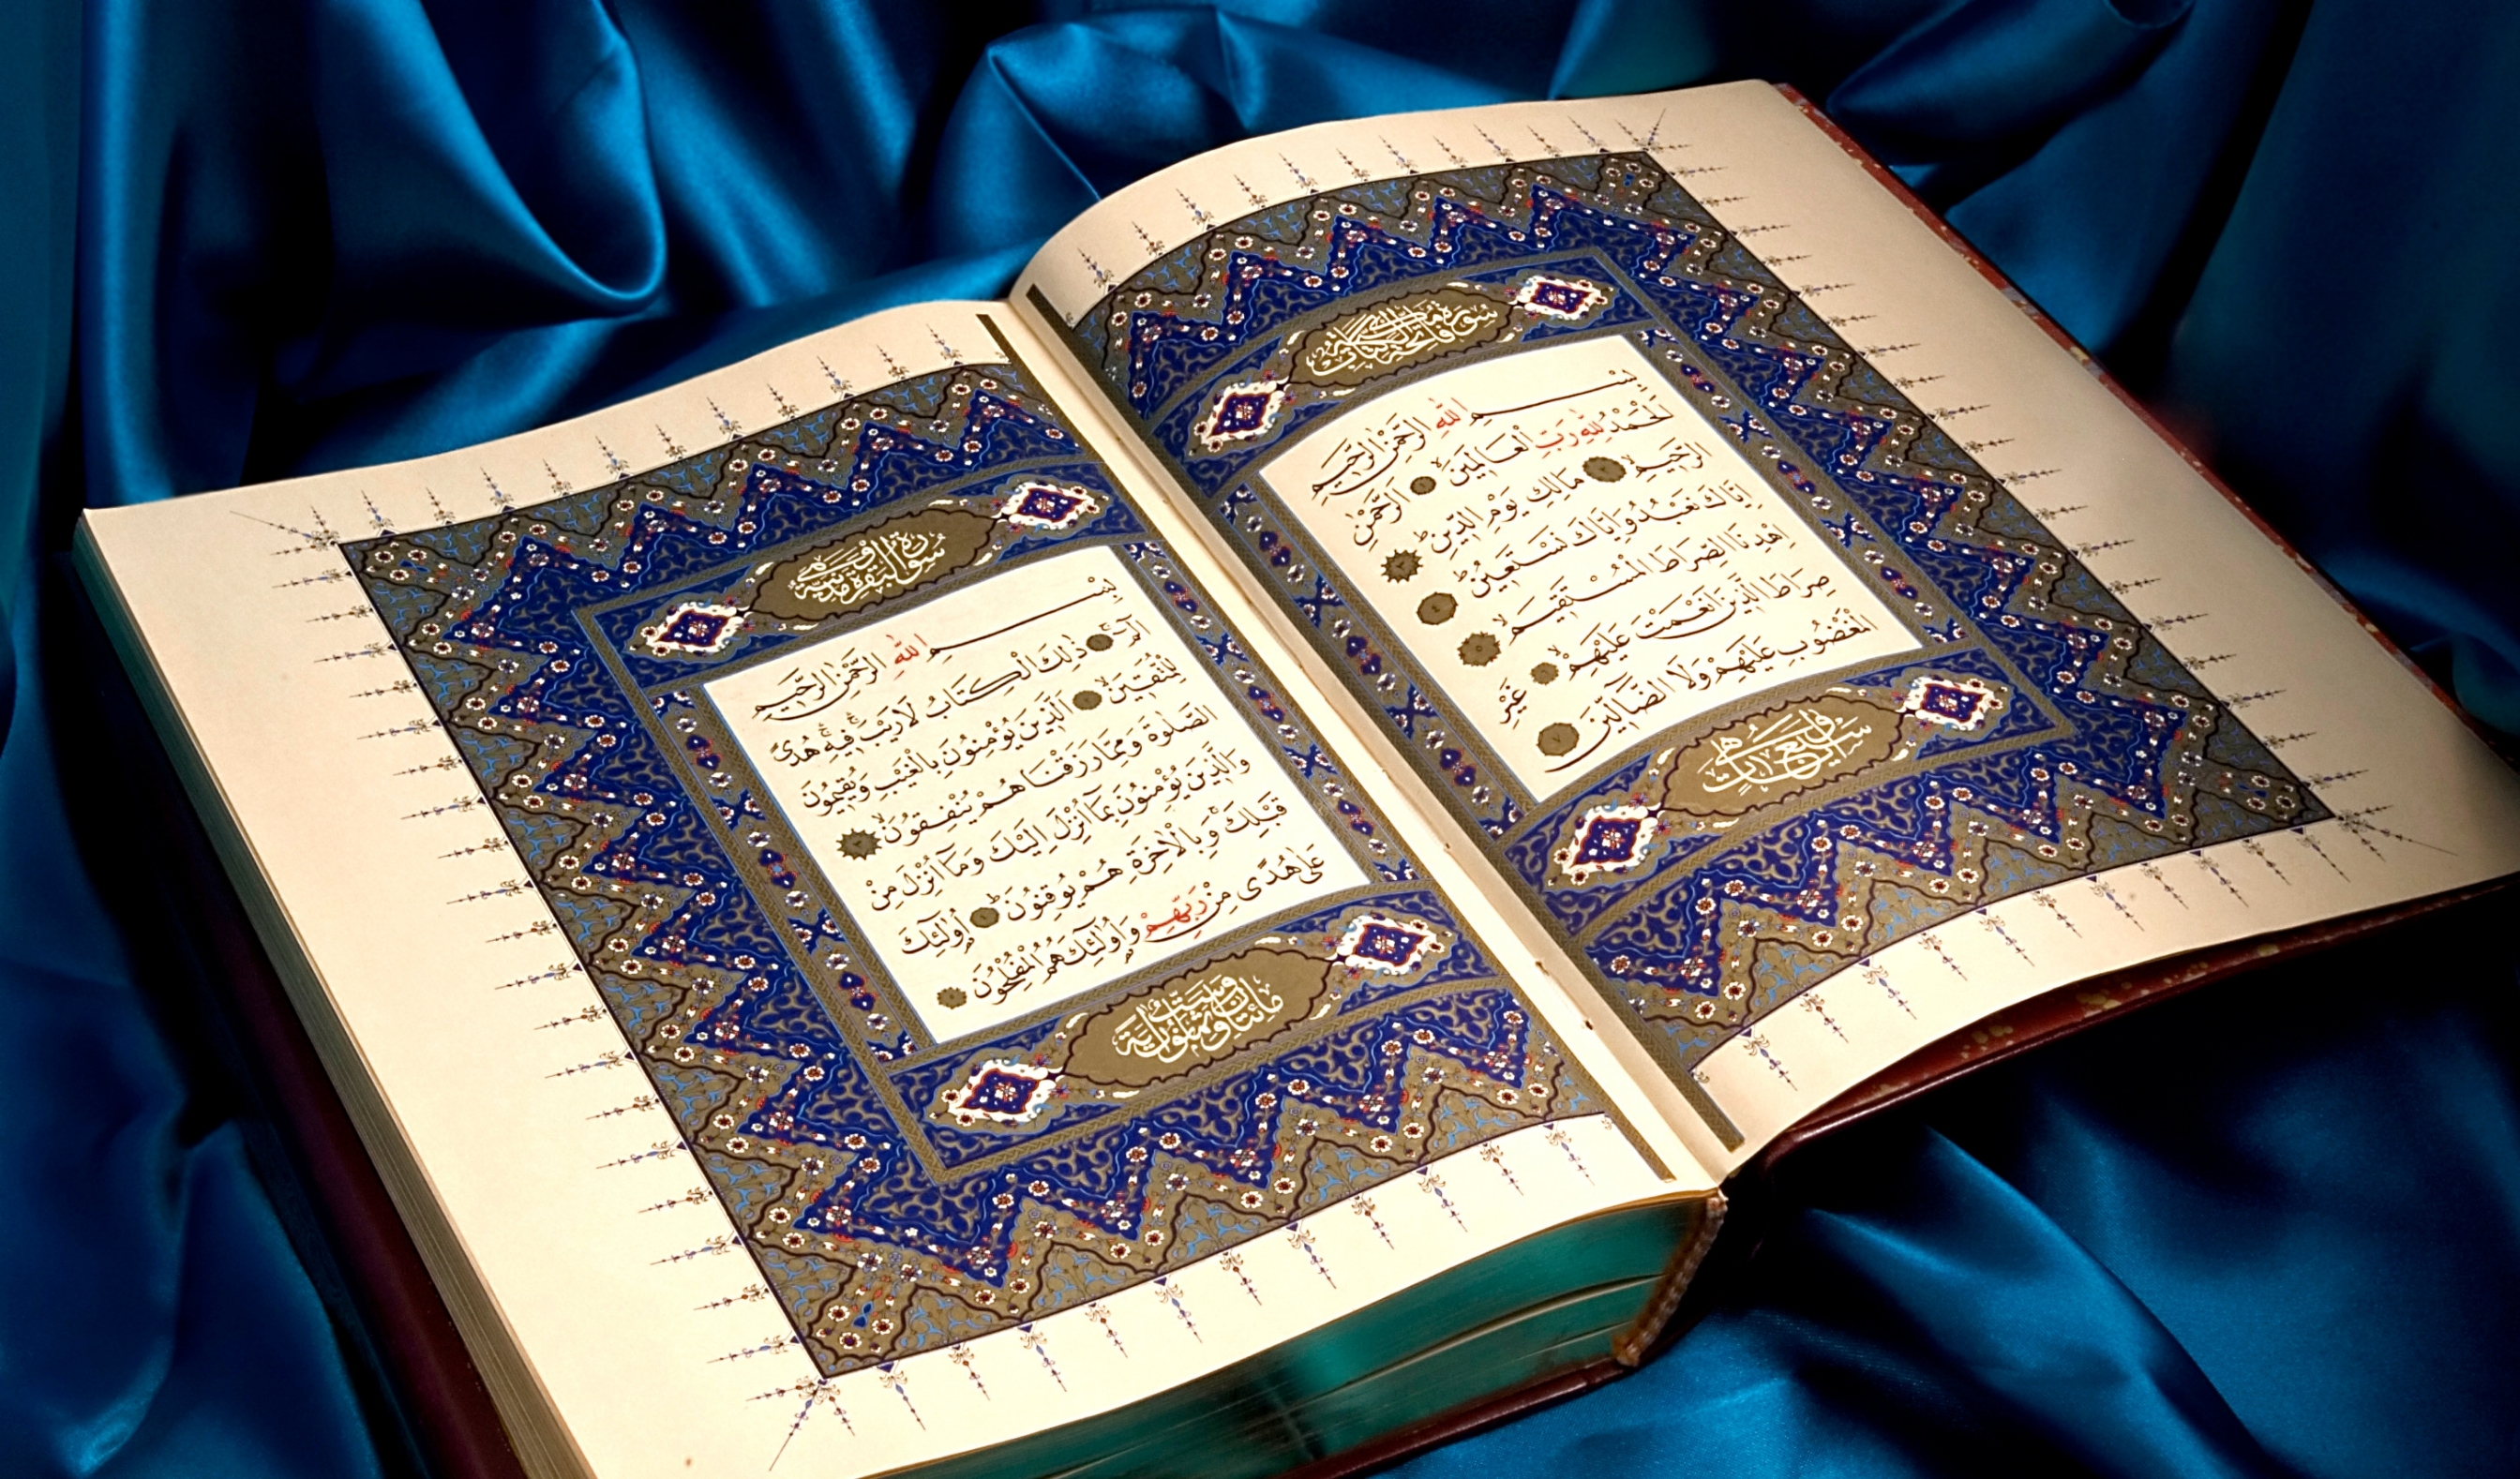 سورة فاتحة الكتاب مكية
بِسْمِ اللهِ الرَّحْمٰنِ الرَّحِيمِ
اَلْحَمْدُ لِلّٰهِ رَبِّ الْعَالَمِينَۙ ۝١ اَلرَّحْمٰنِ
الرَّحِيمِۙ ۝٢ مَالِكِ يَوْمِ الدِّينِۜ ۝٣
اِيَّاكَ نَعْبُدُ وَاِيَّاكَ نَسْتَعِينُۜ ۝٤
اِهْدِنَا الصِّرَاطَ الْمُسْتَقِيمَۙ ۝٥
صِرَاطَ الَّذِينَ اَنْعَمْتَ عَلَيْهِمْۙ ۝٦ غَيْرِ
الْمَغْضُوبِ عَلَيْهِمْ وَلَا الضَّالِّينَ ۝٧
وهي سبع آيات
سورة البقرة مدنية وهي
بِسْمِ اللهِ الرَّحْمٰنِ الرَّحِيمِ
الٓمٓۜ ۝١ ذٰلِكَ الْكِتَابُ لَا رَيْبَۚ فِيهِۚ هُدًى
لِلْمُتَّقِينَۙ ۝٢ اَلَّذِينَ يُؤْمِنُونَ بِالْغَيْبِ وَيُقِيمُونَ
الصَّلٰوةَ وَمِمَّا رَزَقْنَاهُمْ يُنْفِقُونَۙ ۝٣
وَالَّذِينَ يُؤْمِنُونَ بِمَٓا اُنْزِلَ اِلَيْكَ وَمَٓا اُنْزِلَ مِنْ
قَبْلِكَۚ وَبِالْاٰخِرَةِ هُمْ يُوقِنُونَۜ ۝٤ اُو۬لٰٓئِكَ
عَلٰى هُدًى مِنْ رَبِّهِمْ وَاُو۬لٰٓئِكَ هُمُ الْمُفْلِحُونَ ۝٥
مائتان وست وثمانون آية